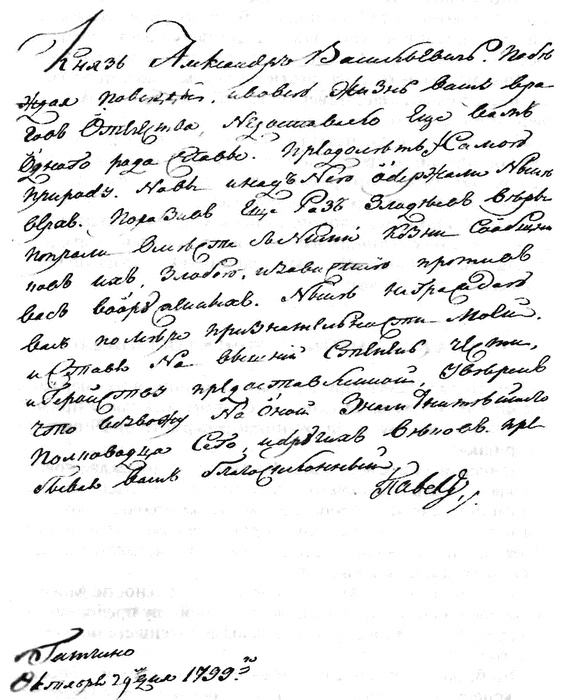 Князь Александръ Васильевичь. Побѣ
ждая повсюду, и во всю жизнь вашу вра
говъ Отечества, Недоставало Еще вамъ
Однаго рода славы. Преодолѣть Самою
природу. Но вы и надъ Нею одержали Нынѣ
верхъ. Поразивъ Еще Разъ Злодѣевъ вѣры
попрали вмѣстѣ съ Ними Козни Сообщни
ковъ ихъ, Злобою, и завистью противъ
васъ вооруженныхъ. Нынѣ награждаю
васъ по мѣрѣ признательности Моей.
и Ставя На вышній Степень чести,
и Геройства предоставленной, Увѣренъ
что возвожу На Оной Знаменитѣйшаго
Полководца Сего, и другихъ вѣковъ. пре
бываю вамъ благосклонный
Павелъ
Гатчино
Октября 29го дня 1799го